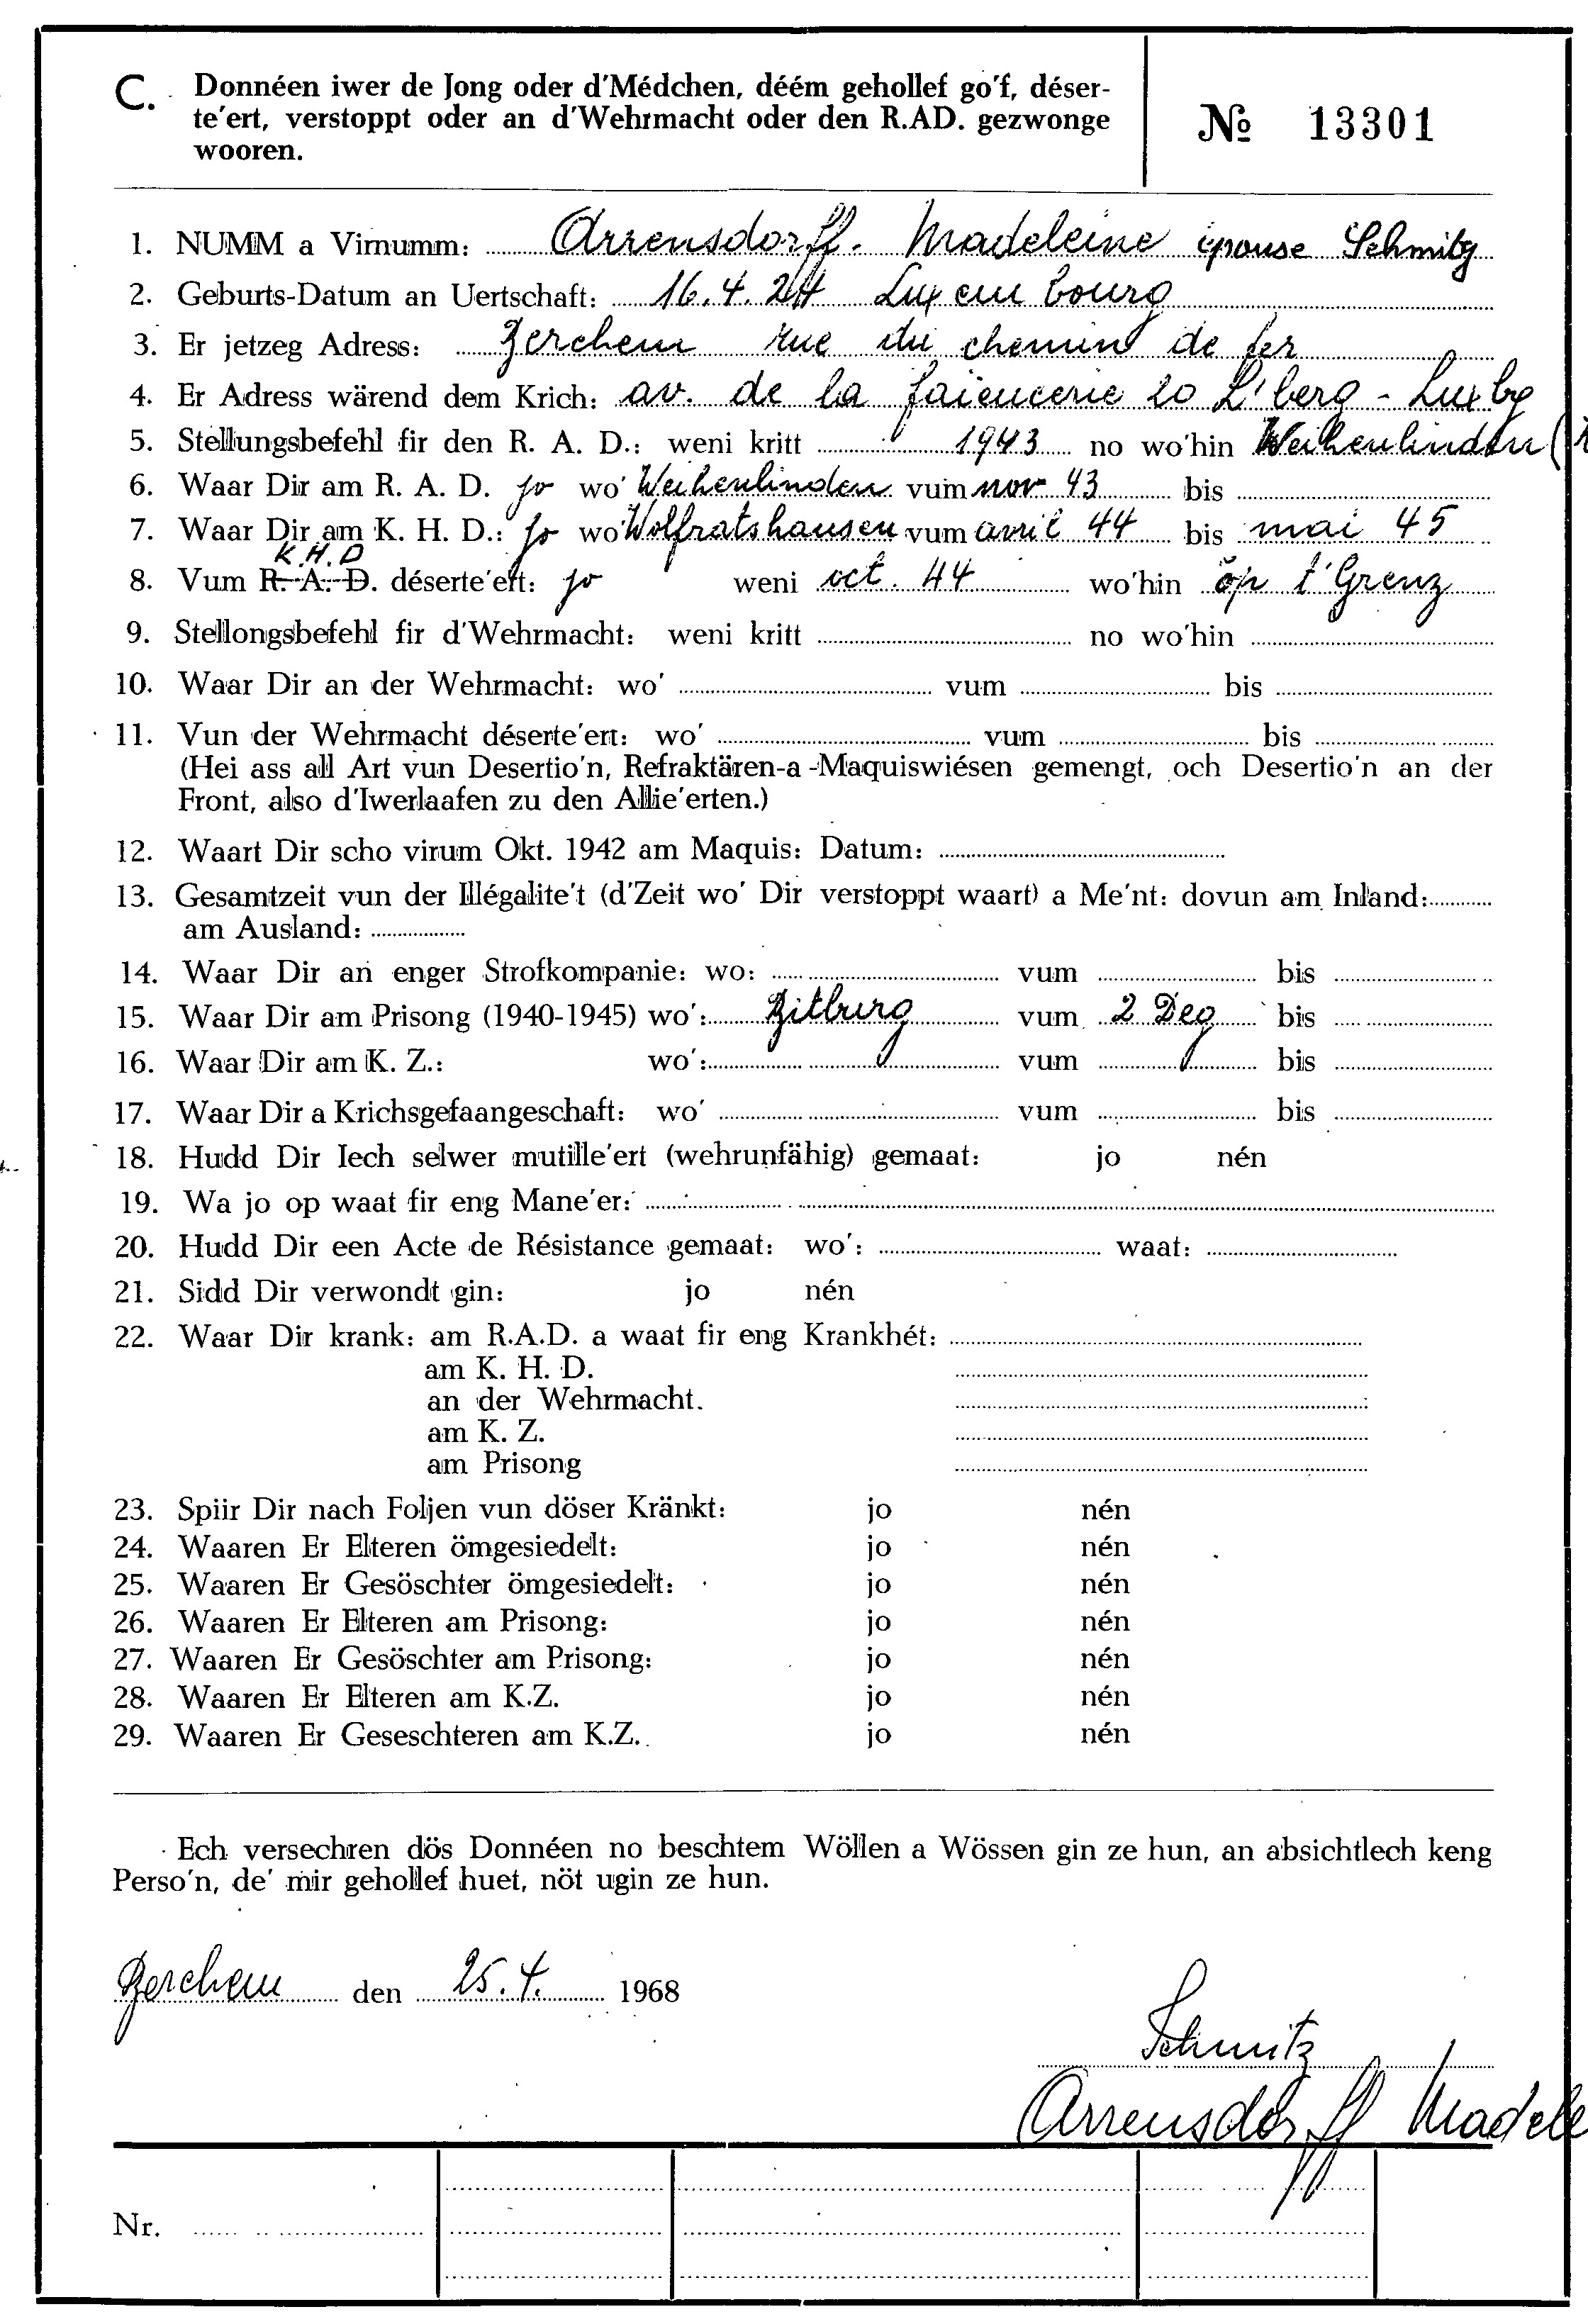 C. Donnéen iwer de Jong oder d'Médchen, déém gehollef go'f, déser-
te'ert, verstoppt oder an d'Wehrmacht oder den R.AD. gezwonge
wooren.
№ 13301
1. NUMM a Virnumm: Arrensdorff. Madeleine épouse Schmitz
2. Geburts-Datum an Uertschaft: 16.4.24 Luxembourg
3. Er jetzeg Adress: Berchem rue du chemin de fer
4. Er Adress wärend dem Krich: av. de la faiencerie 20 L'berg - Luxbg
5. Stellungsbefehl fir den R. A. D.: weni kritt 1943 no wo'hin Weihenlinden (
6. Waar Dir am R. A. D. jo wo' Weihenlinden vum nov 43 bis
7. Waar Dir am K. H. D.: jo wo' Wolfratshausen vum avril 44 bis mai 45
K.H.D
8. Vum R. A. D. déserte'ert: jo weni oct. 44 wo'hin öp t'Grenz
9. Stellongsbefehl fir d'Wehrmacht: weni kritt no wo'hin
10. Waar Dir an der Wehrmacht: wo' vum bis
11. Vun der Wehrmacht déserte'ert: wo' vum bis
(Hei ass all Art vun Desertio'n, Refraktären-a-Maquiswiésen gemengt, och Desertio'n an der
Front, also d'Iwerlaafen zu den Allie'erten.)
12. Waart Dir scho virum Okt. 1942 am Maquis: Datum:
13. Gesamtzeit vun der Illégalite't (d'Zeit wo' Dir verstoppt waart) a Me'nt: dovun am Inland:
am Ausland:
14. Waar Dir an enger Strofkompanie: wo: vum bis
15. Waar Dir am Prisong (1940-1945) wo': Bitburg vum 2 Dez bis
16. Waar Dir am K. Z.: wo': vum bis
17. Waar Dir a Krichsgefaangeschaft: wo' vum bis
18. Hudd Dir Iech selwer mutille'ert (wehrunfähig) gemaat: jo nén
19. Wa jo op waat fir eng Mane'er:
20. Hudd Dir een Acte de Résistance gemaat: wo': waat:
21. Sidd Dir verwondt gin: jo nén
22. Waar Dir krank: am R.A.D. a waat fir eng Krankhét:
am K. H. D.
an der Wehrmacht.
am K. Z.
am Prisong
23. Spiir Dir nach Foljen vun döser Kränkt: jo nén
24. Waaren Er Elteren ömgesiedelt: jo nén
25. Waaren Er Gesöschter ömgesiedelt: jo nén
26. Waaren Er Elteren am Prisong: jo nén
27. Waaren Er Gesöschter am Prisong: jo nén
28. Waaren Er Elteren am K.Z. jo nén
29. Waaren Er Geseschteren am K.Z. jo nén
Ech versechren dös Donnéen no beschtem Wöllen a Wössen gin ze hun, an absichtlech keng
Perso'n, de' mir gehollef huet, nöt ugin ze hun.
Berchem den 25.4. 1968
Schmitz
Arrensdorff Madele
Nr.